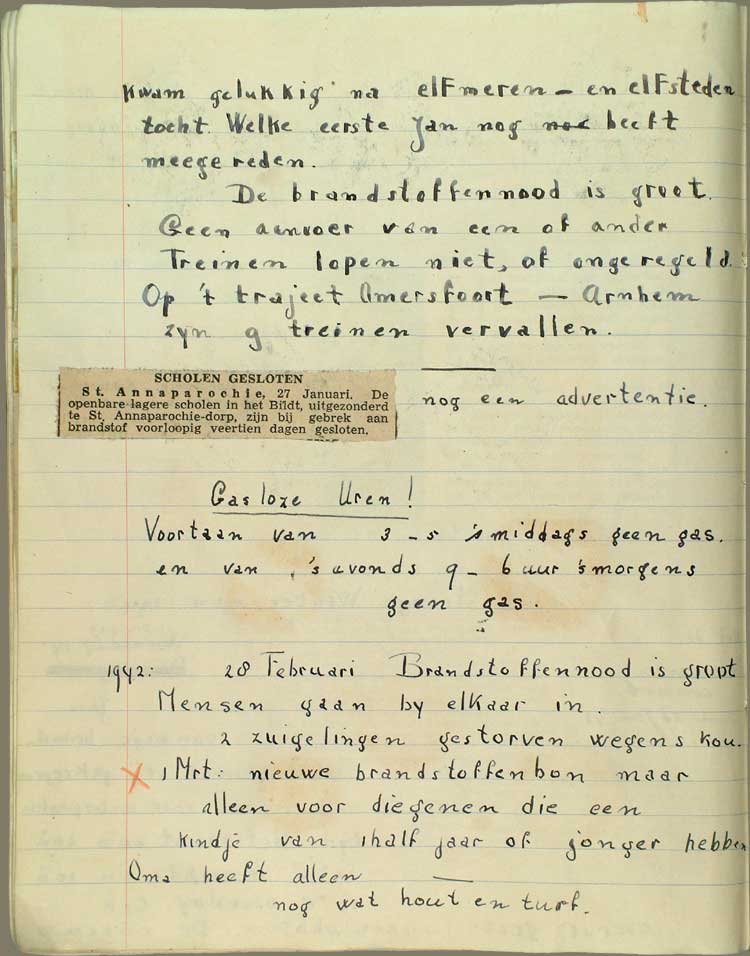 kwam gelukkig na elfmeren - en elfsteden
tocht. Welke eerste Jan nog heeft
meegereden.
De brandstoffennood is groot.
Geen aanvoer van een of ander
Treinen lopen niet, of ongeregeld.
Op 't traject Amersfoort - Arnhem
zyn 9 treinen vervallen.
SCHOLEN GESLOTEN
St. Annaparochie, 27 Januari. De
openbare lagere scholen in het Bildt, uitgezonderd
te St. Annaparochie-dorp, zijn bij gebrek aan
brandstof voorloopig veertien dagen gesloten.
nog een advertentie.
Gasloze Uren!
Voortaan van 3 - 5 's middags geen gas.
en van 's avonds 9 - 6 uur 's morgens
geen gas.
1942: 28 Februari Brandstoffennood is groot
Mensen gaan by elkaar in.
2 zuigelingen gestorven wegens kou.
X 1 Mrt: nieuwe brandstoffenbon maar
alleen voor diegenen die een
kindje van 1 half jaar of jonger hebben
Oma heeft alleen
nog wat hout en turf.